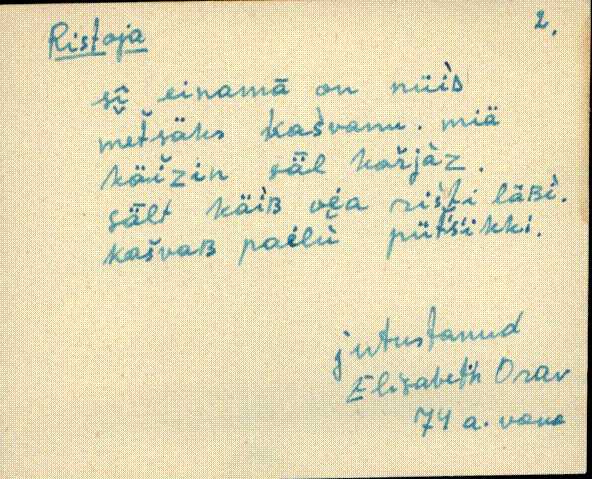 Ristoja
2.
sī einamā on nüiD
metšäks kašvanu. miä
käižin säl karjàz.
sält käiB veä risti läBi.
kašvaB pailù pütšikki.
jutustanud
Elisabeth Orav
74 a. vana